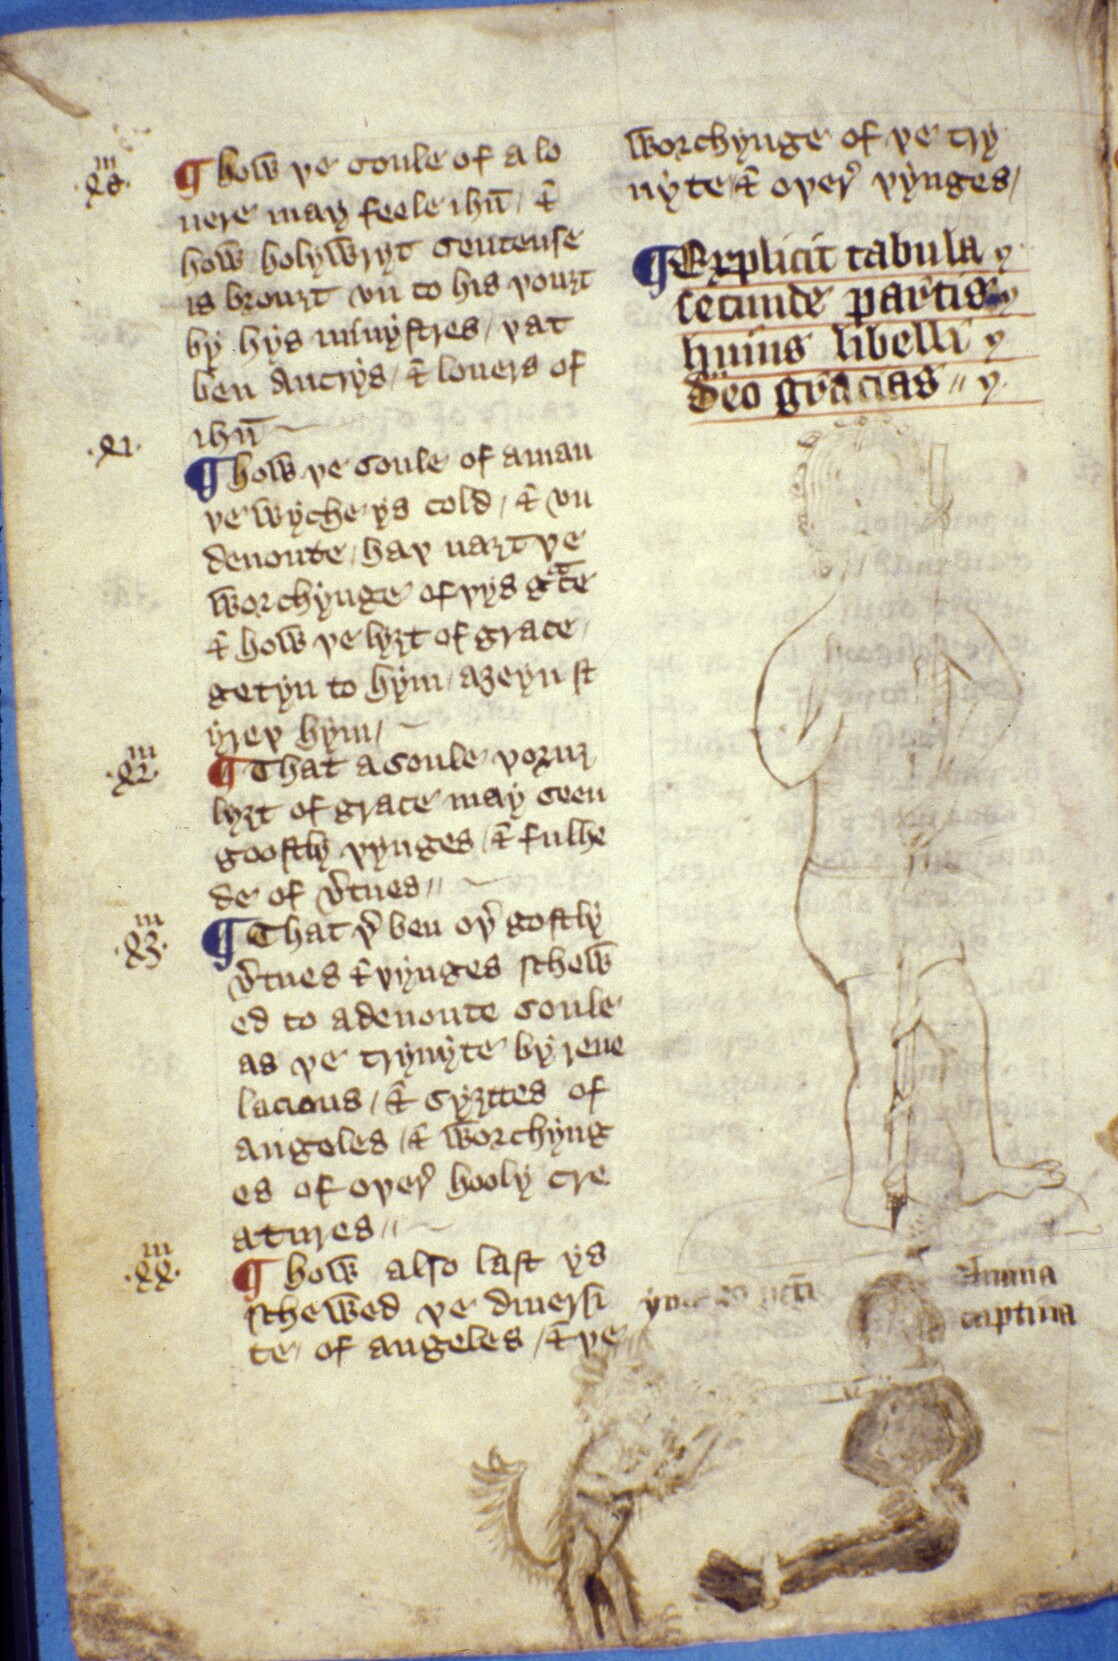 ¶ how þe soule of a lo
uere may feele ihū / &
how holywryt sentense
is brouȝt vn to his þouȝt
by hys mínystres / þat
ben Ancrys / & louers of
ihū
¶ how þe soule of a man
þe wyche ys cold / & vn
deuoute / haþ naȝt þe
worchynge of þys gᵃce
& how þe lyȝt of grace /
getyn to hym / aȝeyn st
yreþ hym /
¶ That a soule þoruȝ
lyȝt of grace may seen
goostly þynges / & fulhe
de of v̓tues //
¶ That þ̓ ben oþ̓ gostly
v̓tues & þynges schew
ed to a deuoute soule
as þe trynyte by reue
lacious / & syȝttes of
angeles / & worchyng
es of oþer̓ hooly cre
atures //
¶ how also last ys
schewed þe diuersi
te of angeles / & þe
worchynge of þe try
nyte & oþer̓ þynges /
¶ Explicit tabula
secunde partis
huius libelli
deo gracias //
Anima
captiua